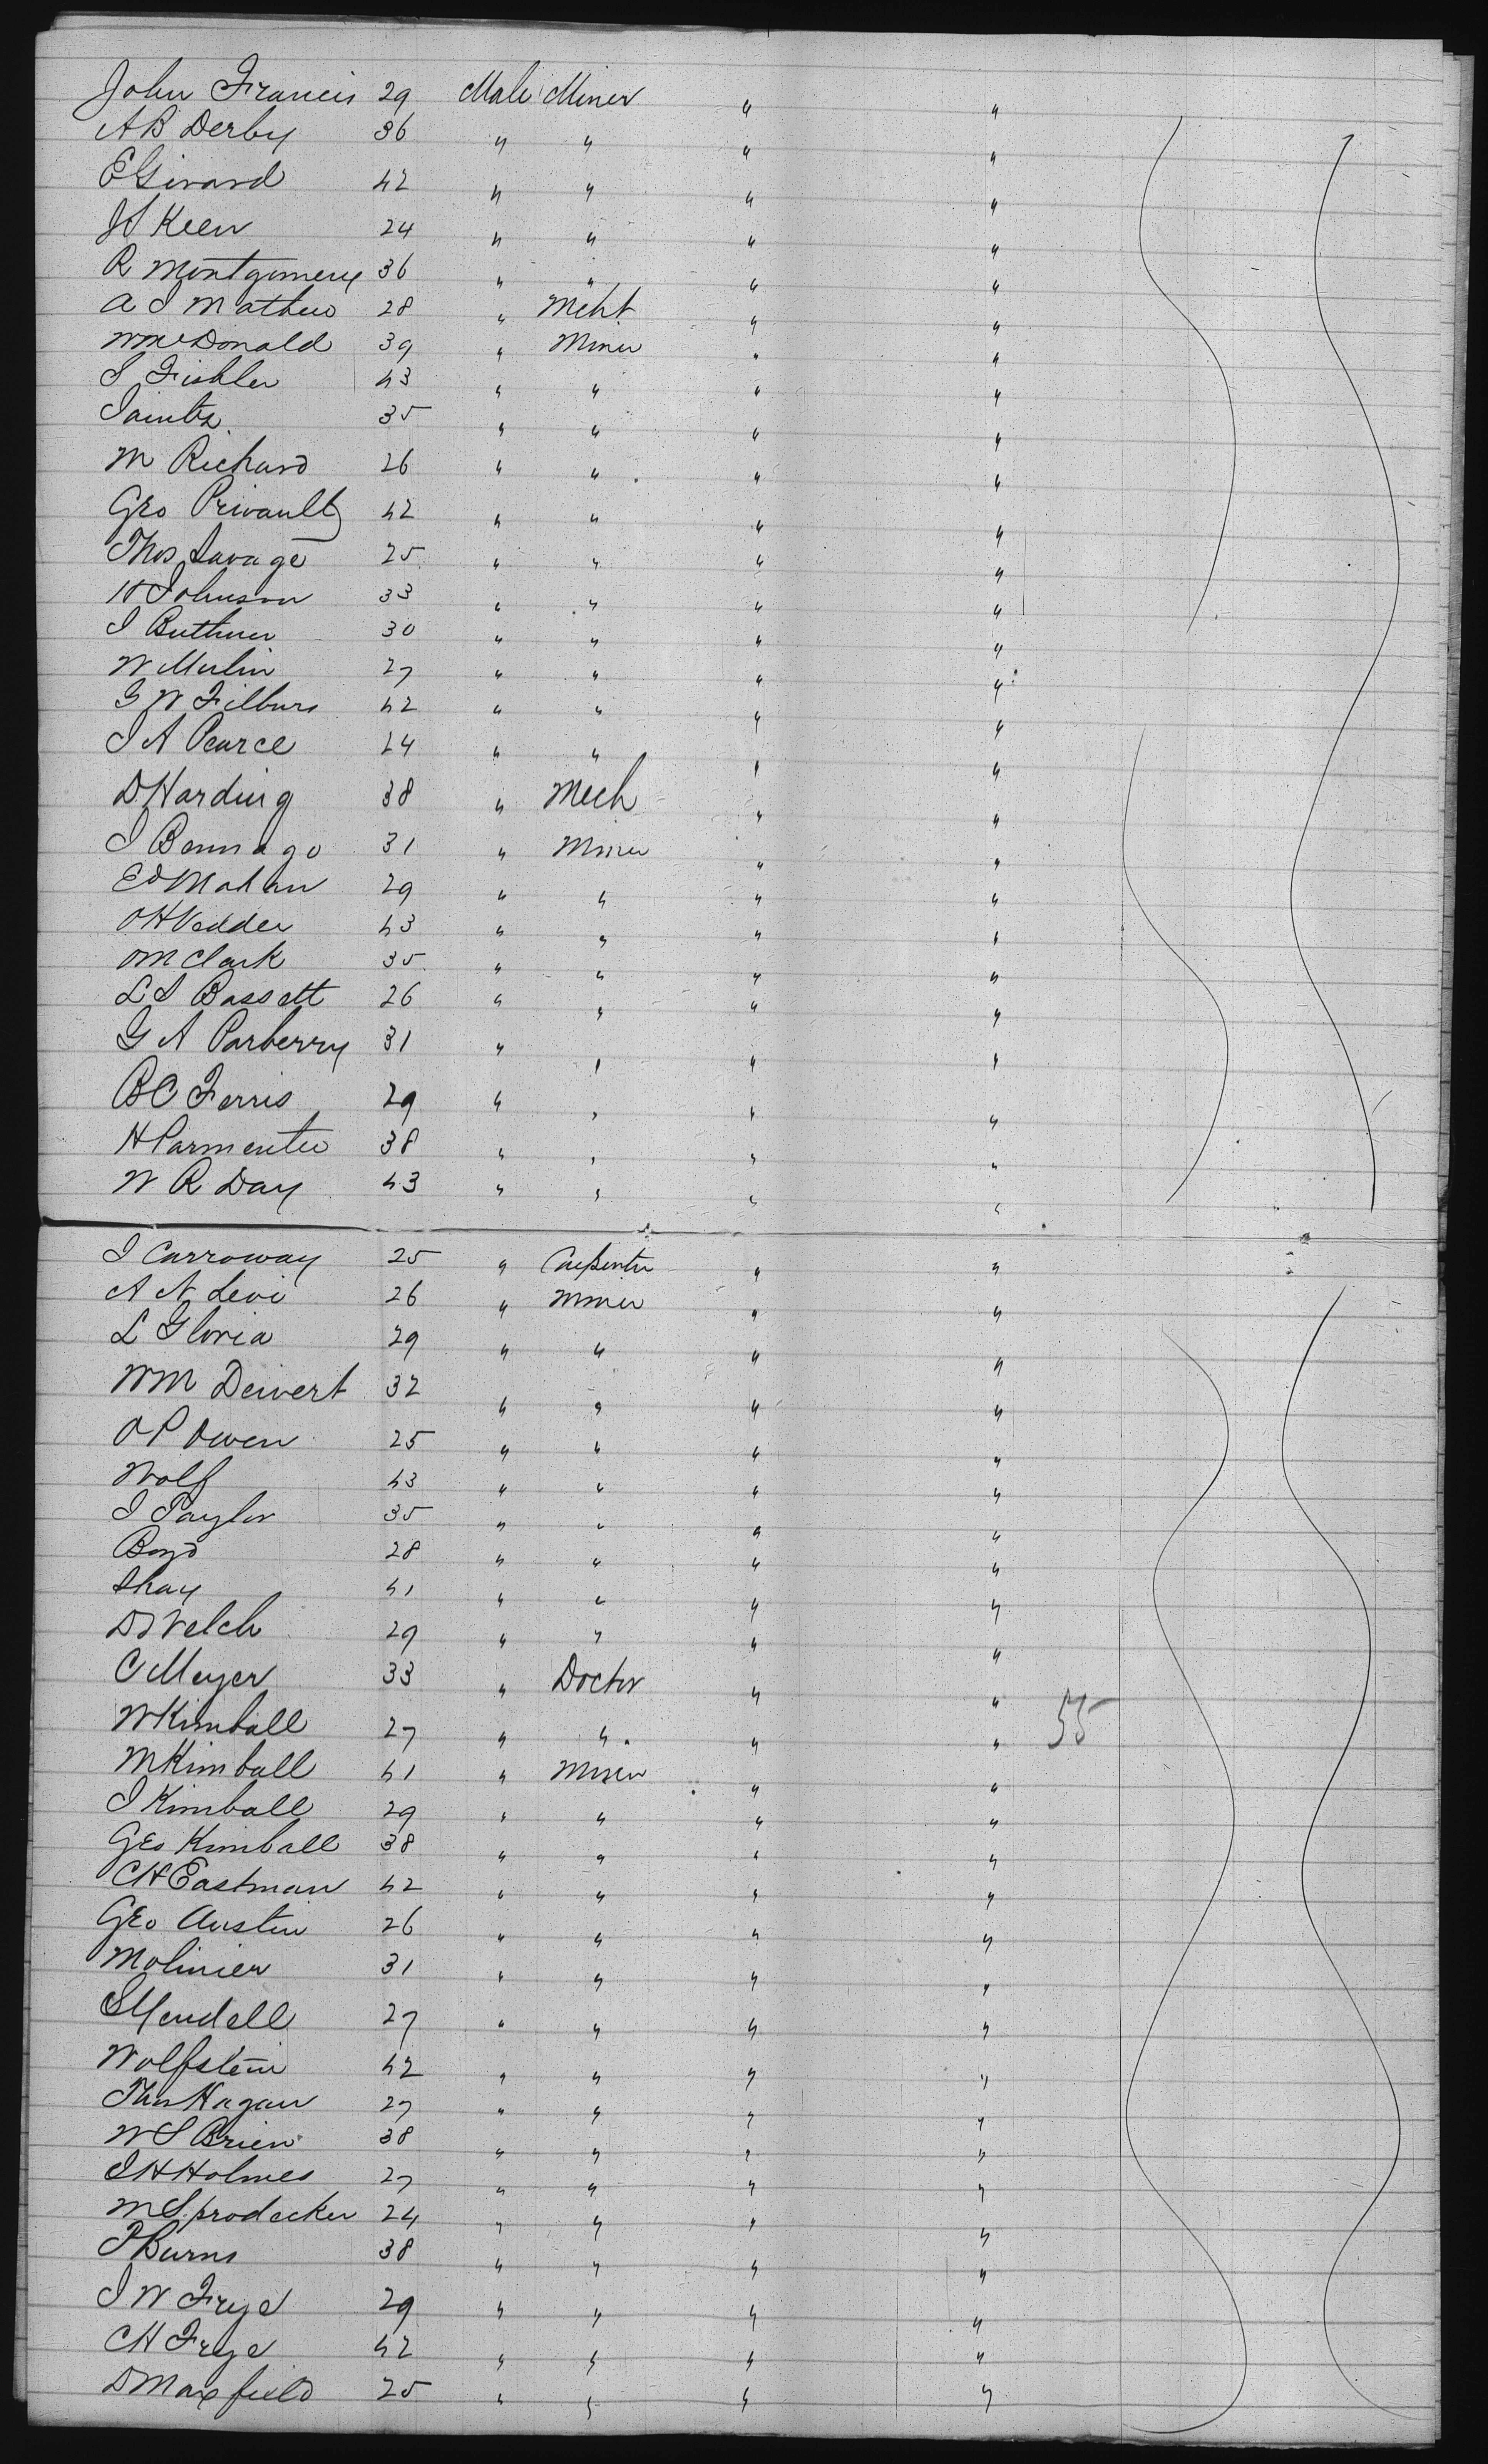 John Francis 29 Male Miner " "
A B Derby 36 " " " "
E Girard 42 " " " "
J S Keen 24 " " " "
R Montgomery 36 " " " "
A J Mathew 28 " Mcht " "
Wm McDonald 39 " Miner " "
S Fishler 43 " " " "
Saints 35 " " " "
M Richard 26 " " " "
Geo Privault 42 " " " "
Thos Savage 25 " " " "
H Johnson 33 " " " "
J Buthner 30 " " " "
W Mulin 27 " " " "
G W Filburs 42 " " " "
J A Pearce 24 " " " "
D Harding 38 " Mech " "
J Bennago 31 " Miner " "
Ed Mahan 29 " " " "
O H Vedder 43 " " " "
O M Clark 35 " " " "
L S Bassett 26 " " " "
G A Parberry 31 " " " "
B C Ferris 29 " " " "
H Parmenter 38 " " " "
W R Day 43 " " " "
J Carroway 25 " Carpenter " "
A N Levi 26 " Miner " "
L Gloria 29 " " " "
W M Deivert 32 " " " "
O P Owen 25 " " " "
Wolf 43 " " " "
J Taylor 35 " " " "
Boyd 28 " " " "
Shay 41 " " " "
D Welch 29 " " " "
C Meyer 33 " Doctor " "
W Kimball 27 " " " " 55
M Kimball 41 " Miner " "
J Kimball 29 " " " "
Geo Kimball 38 " " " "
C H Eastman 42 " " " "
Geo Austin 26 " " " "
Molinier 31 " " " "
S Mendell 27 " " " "
Wolfstein 42 " " " "
Thos Hagan 27 " " " "
W S Brien 38 " " " "
J H Holmes 27 " " " "
M Sprodecker 24 " " " "
P Burns 38 " " " "
J W Frye 29 " " " "
C H Frye 42 " " " "
D Maxfield 25 " " " "